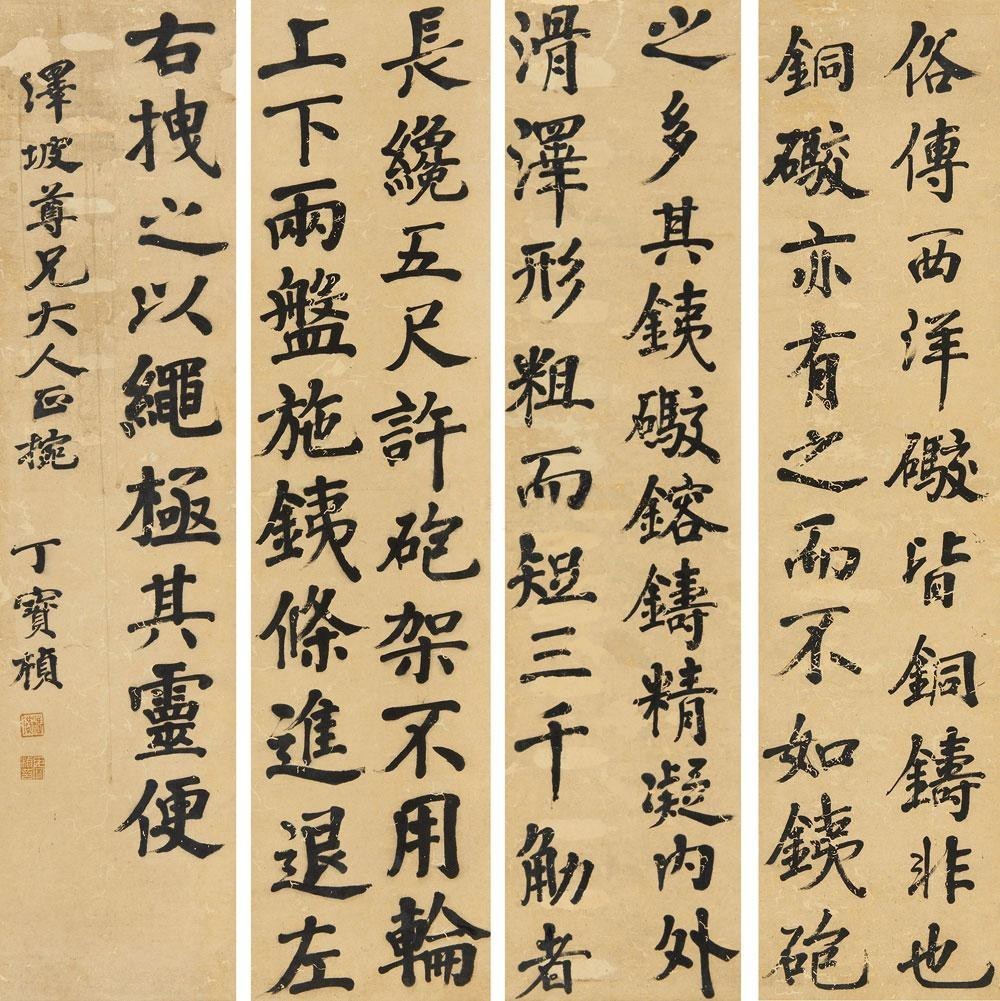 俗傳西洋礮皆銅鑄非也
銅礮亦有之而不如銕砲
之多其銕礮鎔鑄精凝内外
滑澤形粗而短三千觔者
長纔五尺許砲架不用輪
上下兩盤施銕條進退左
右拽之以繩極其靈便
繹坡尊兄大人正捥 丁寶楨